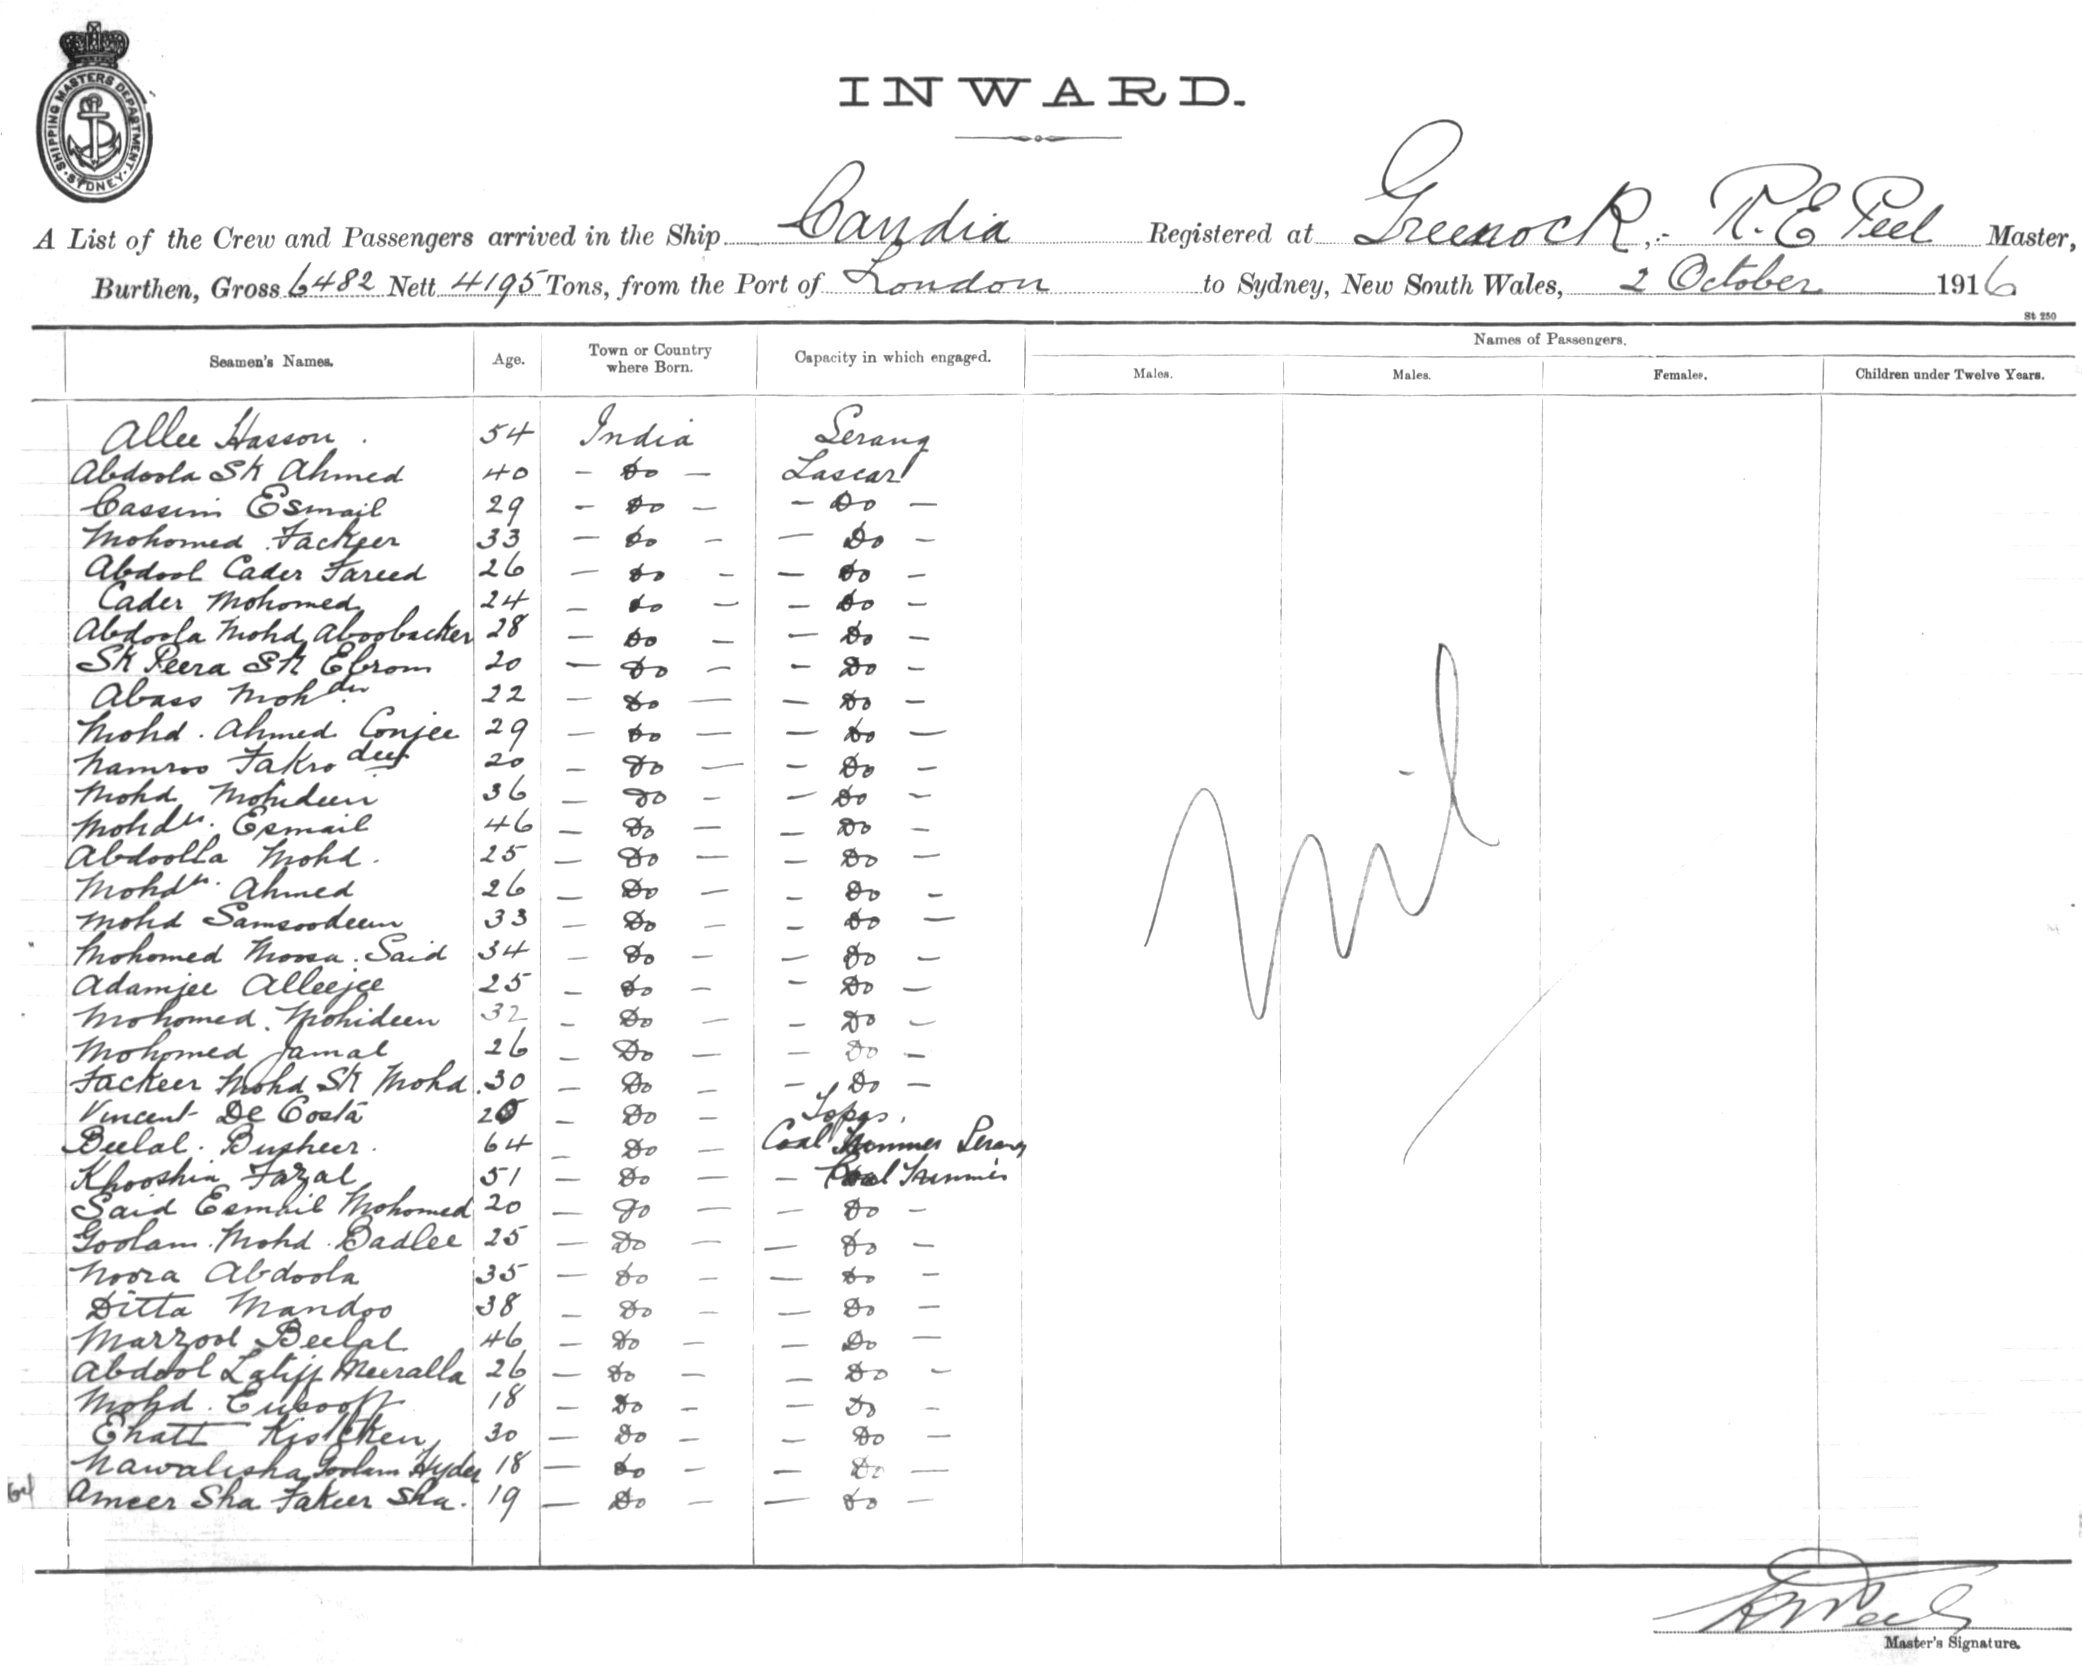 SHIPPING MASTERS DEPARTMENT · SYDNEY ·
INWARD.
A List of the Crew and Passengers arrived in the Ship Candia Registered at Greenock, R. E Peel Master,
Burthen, Gross 6482 Nett 4195 Tons, from the Port of London to Sydney, New South Wales, 2 October 1916
St 250
Seamen's Names. Age. Town or Country where Born. Capacity in which engaged. Names of Passengers.
Males. Males. Females. Children under Twelve Years.
Allee Hasson. 54 India Serang
Abdoola Sk Ahmed 40 - Do - Lascar
Cassim Esmail 29 - Do - - Do -
Mohomed Fackeer 33 - Do - - Do -
Abdool Cader Fareed 26 - Do - - Do -
Cader Mohomed 24 - Do - - Do -
Abdoola Mohd Aboobacker 28 - Do - - Do -
Sk Peera Sk Ebrom 20 - Do - - Do -
Abass Mohdn 22 - Do - - Do -
Mohd. Ahmed Conjee 29 - Do - - Do -
Namroo Fakrodeen 20 - Do - - Do -
Mohd Mohideen 36 - Do - - Do -
Mohdn. Esmail 46 - Do - - Do -
Abdoolla Mohd. 25 - Do - - Do -
Mohdn. Ahmed 26 - Do - - Do -
Mohd Samsoodeen 33 - Do - - Do -
Mohomed Moosa. Said 34 - Do - - Do -
Adamjee Alleejee 25 - Do - - Do -
Mohomed. Mohideen 32 - Do - - Do -
Mohomed Jamal 26 - Do - - Do -
Fackeer Mohd Sk Mohd. 30 - Do - - Do -
Vincent De Costa - Do - Topas.
Beelal. Busheer. 64 - Do - Coal Trimmer Serang
Khooshia Fazal 51 - Do - - Coal Trimmer
Said Esmail Mohomed 20 - Do - - Do -
Goolam. Mohd. Badlee 25 - Do - - Do -
Noora Abdoola 35 - Do - - Do -
Ditta Mandoo 38 - Do - - Do -
Marzool Beelal 46 - Do - - Do -
Abdool Latiff Meeralla 26 - Do - - Do -
Mohd. Eusooff 18 - Do - - Do -
Ehatt 30 - Do - - Do -
Nawalisha Goolam Hyder 18 - Do - - Do -
Ameer Sha Fakeer Sha. 19 - Do - - Do -
Nil
Master's Signature.